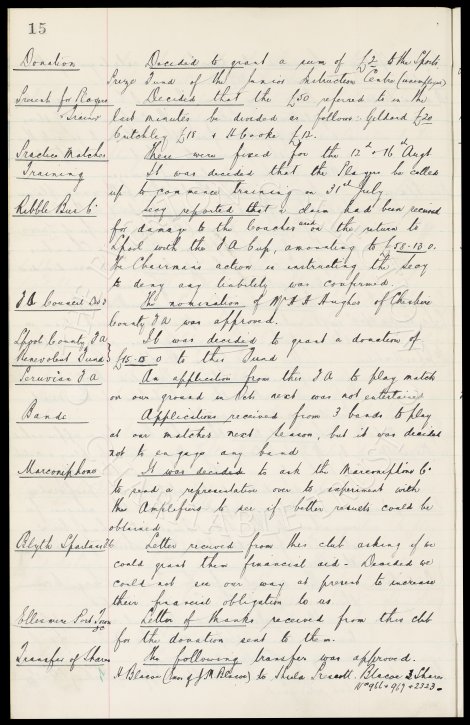 15
Donation Decided to grant a sum of £2 to the Sports
Prize Fund of the Junior Instruction Centre (unemployed)
Present for Players Decided that the £50 referred to in the
+ Trainer last minutes be divided as follows: Geldard £20
Critchley £18 + H Cooke £12.
Practice Matches These were fixed for the 12th + 16th Augt
Training It was decided that the Players be called
up to commence training on 31st July
Ribble Bus Co Secy reported that a claim had been received
for damage to the Coaches used on the return to
Lpool with the FA Cup, amounting to £58-13-0.
The Chairman's action in instructing the Secy
to deny any liability was confirmed.
FA Council The nomination of Mr Hughes of Cheshire
County FA was approved.
Lpool County FA It was decided to grant a donation of
Benevolent Fund £15-15-0 to this Fund
Peruvian FA An application from this FA to play match
on our ground in Octr next was not entertained
Bands Applications received from 3 bands to play
at our matches next season, but it was decided
not to engage any band
Marconiphone It was decided to ask the Marconiphone Co
to send a representative over to experiment with
the Amplifiers to see if better results could be
obtained
Blyth Spartans Letter received from this club asking if we
could grant them financial aid - Decided we
could not see our way at present to increase
their financial obligation to us
Ellesmere Port Town Letter of thanks received from this club
FC for the donation sent to them.
Transfer of Shares The following transfer was approved.
H Blacoe (son of J M Blacoe) to Shiela Prescott Blacoe 3 Shares
Nos 966 + 967 + 2323.